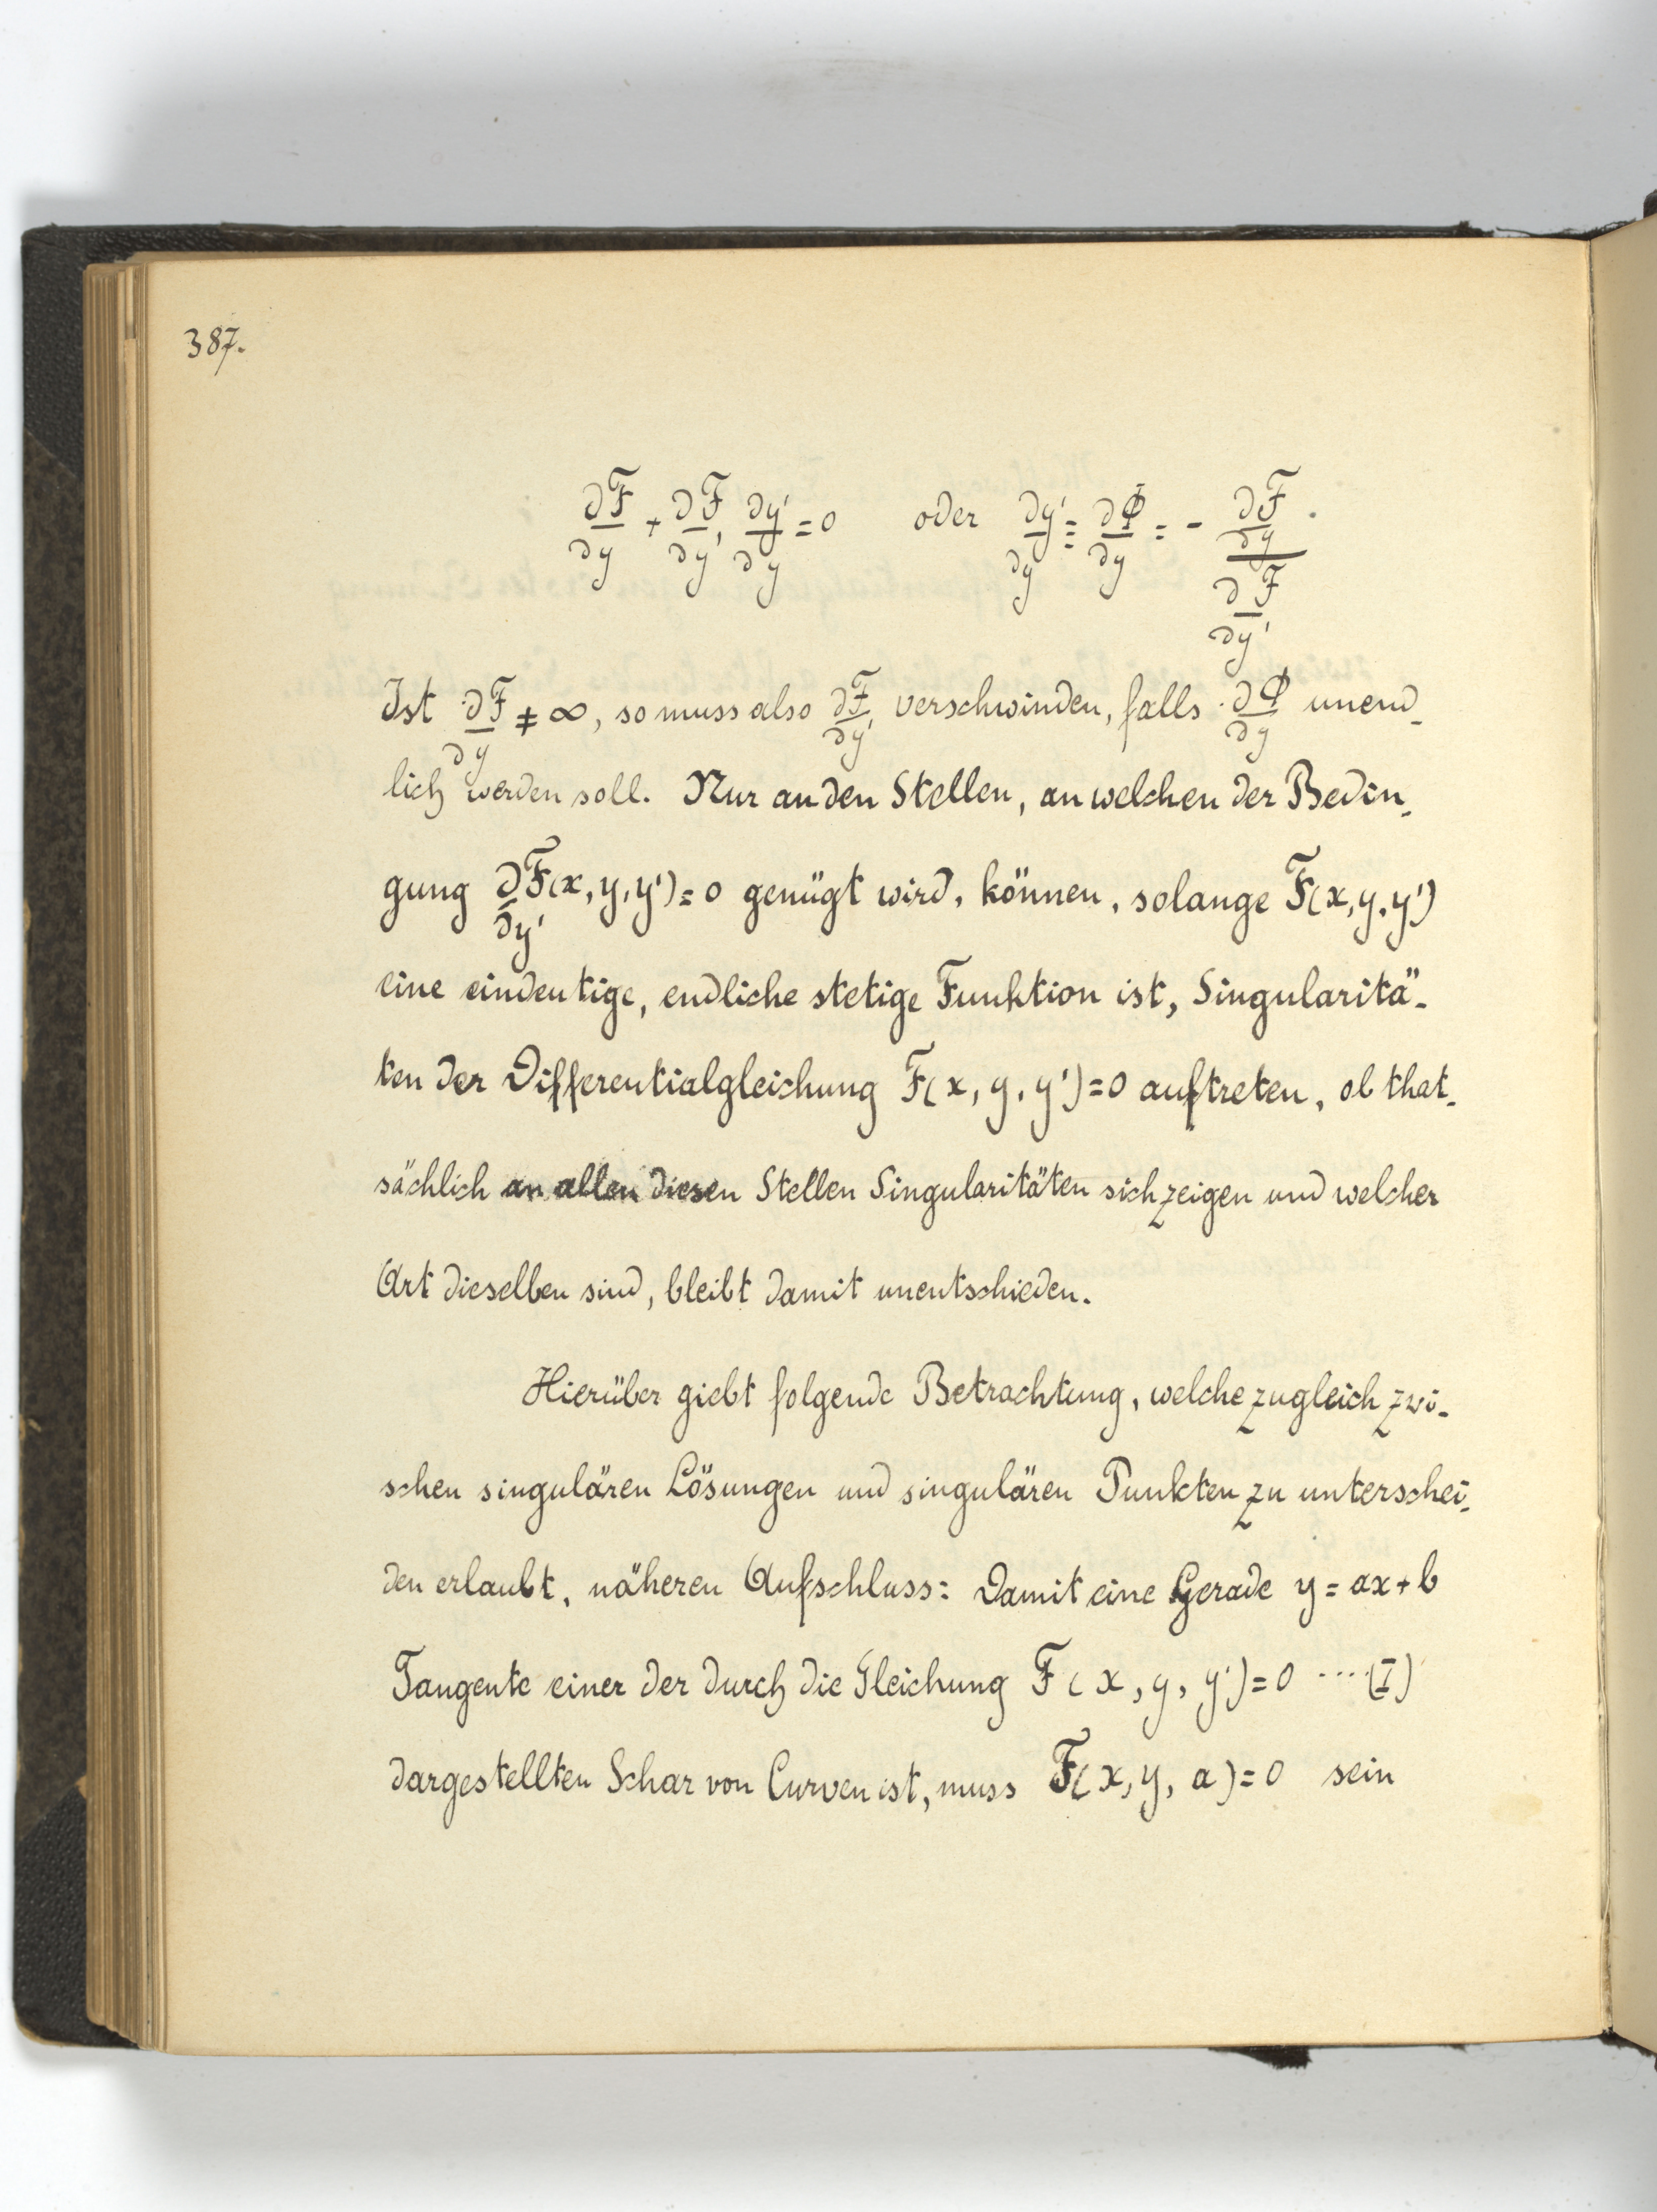 387.
∂F/∂y + ∂F/∂y' ∂y'/∂y = 0 oder ∂y'/∂y = ∂Φ/∂y = - (∂F/∂y)/(∂F/∂y').
Ist ∂F/∂y ≠ ∞, so muss also ∂F/∂y' verschwinden, falls ∂Φ/∂y unend-
lich werden soll. Nur an den Stellen, an welchen der Bedin-
gung ∂F(x, y, y')/∂y' = 0 genügt wird, können, solange F(x, y, y')
eine eindeutige, endliche stetige Funktion ist, Singularitä-
ten der Differentialgleichung F(x, y, y') = 0 auftreten, ob that-
sächlich an allen diesen Stellen Singularitäten sich zeigen und welcher
Art dieselben sind, bleibt damit unentschieden.
Hierüber giebt folgende Betrachtung, welche zugleich zwi-
schen singulären Lösungen und singulären Punkten zu unterschei-
den erlaubt, näheren Aufschluss: Damit eine Gerade y = ax + b
Tangente einer der durch die Gleichung F(x, y, y') = 0 ....(I)
dargestellten Schar von Curven ist, muss F(x, y, a) = 0 sein